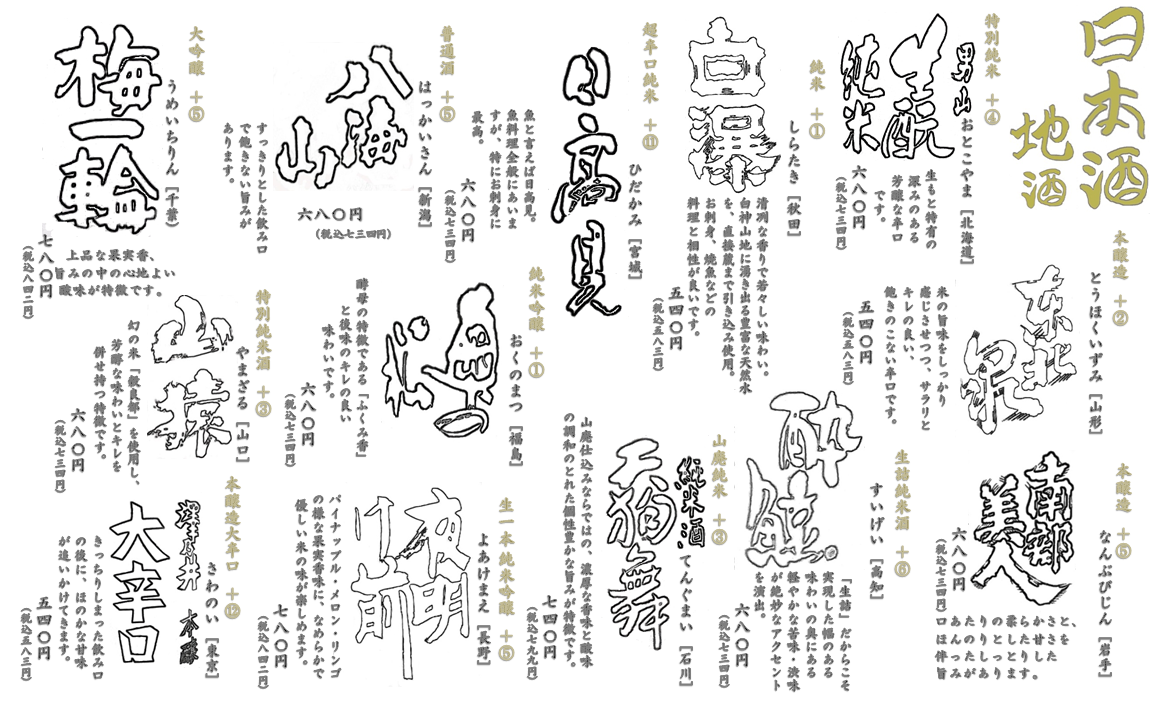 日本酒
地酒
特別純米 +④
男山
生酛
純米
おとこやま [北海道]
生もと特有の
深みのある
芳醇な辛口
です。
六八〇円
(税込七三四円)
純米 +①
白瀑
しらたき [秋田]
清冽な香りで若々しい味わい。
白神山地に湧き出る豊富な天然水
を、直接蔵まで引き込み使用。
お刺身、焼魚などの
料理と相性が良いです。
五四〇円
(税込五八三円)
超辛口純米 +⑪
日高見
ひだかみ [宮城]
魚と言えば日高見。
魚料理全般にあいま
すが、特にお刺身に
最高。
六八〇円
(税込七三四円)
普通酒 +⑤
八海山
はっかいさん [新潟]
すっきりとした飲み口
で飽きない旨みが
あります。
六八〇円
(税込七三四円)
大吟醸 +⑤
梅一輪
うめいちりん [千葉]
上品な果実香、
旨みの中の心地よい
酸味が特徴です。
七八〇円
(税込八四二円)
本醸造 +②
東北泉
とうほくいずみ [山形]
米の旨味をしっかり
感じさせつつ、サラリと
キレの良い、
飽きのこない辛口です。
五四〇円
(税込五八三円)
純米吟醸 +①
奥の松
おくのまつ [福島]
酵母の特徴である『ふくみ香』
と後味のキレの良い
味わいです。
六八〇円
(税込七三四円)
特別純米酒 +③
山猿
やまざる [山口]
幻の米『穀良都』を使用し、
芳醇な味わいとキレを
併せ持つ特徴です。
六八〇円
(税込七三四円)
本醸造 +⑤
南部美人
なんぶびじん [岩手]
と、を
ささた
か甘し
らたりす。
柔しとま
のとっり
りりしあ
たのたが
あんっみ
口ほ伴旨
六八〇円
(税込七三四円)
生詰純米酒 +⑥
酔鯨
すいげい [高知]
『生詰』だからこそ
実現した幅のある
味わいの奥にある
軽やかな苦味・渋味
が絶妙なアクセント
を演出。
六八〇円
(税込七三四円)
山廃純米 +③
純米酒
天狗舞
てんぐまい [石川]
山廃仕込みならではの、濃厚な香味と酸味
の調和のとれた個性豊かな旨みが特徴です。
七四〇円
(税込七九九円)
生一本純米吟醸 +⑤
夜明け前
よあけまえ [長野]
パイナップル・メロン・リンゴ
の様な果実香味に、なめらかで
優しい米の味が楽しめます。
七八〇円
(税込八四二円)
本醸造大辛口 +⑫
澤乃井 本醸
大辛口
さわのい [東京]
きっちりしまった飲み口
の後に、ほのかな甘味
が追いかけてきます。
五四〇円
(税込五八三円)